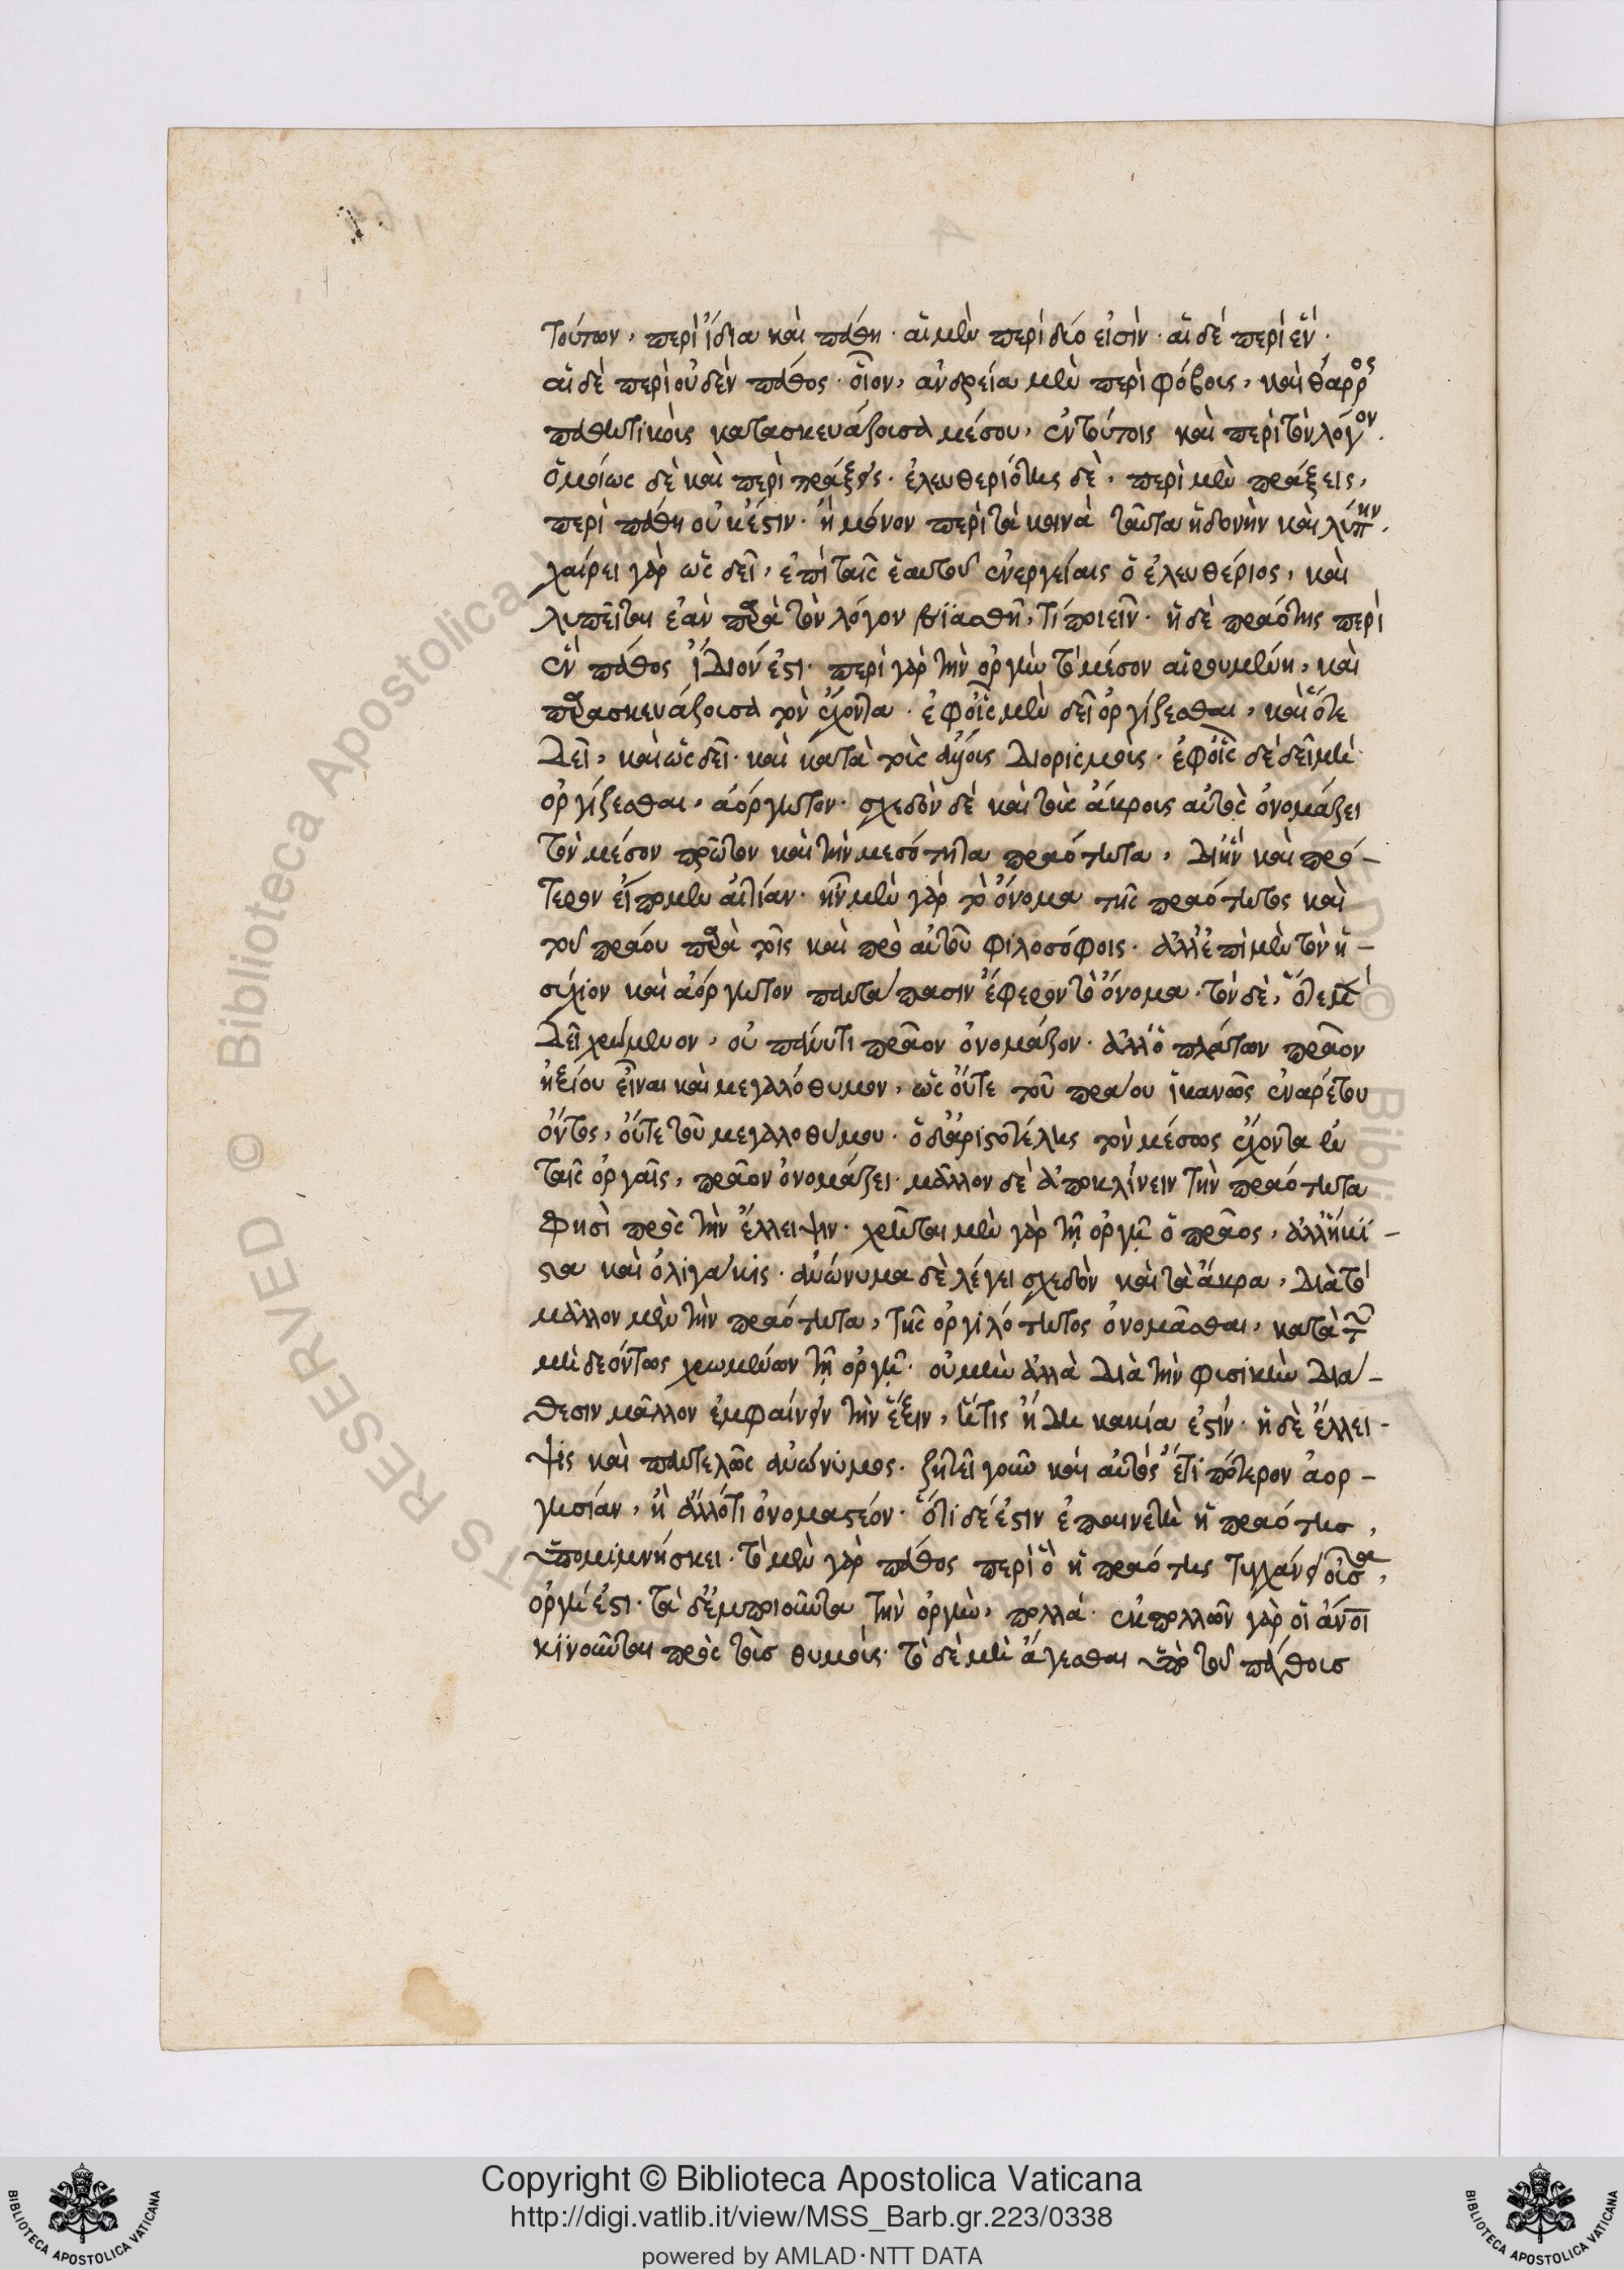 τούτων, περὶ ἴδια καὶ πάθη· αἱ μὲν περὶ δύο εἰσὶν· αἱ δὲ περὶ ἓν·
αἱ δὲ περὶ οὐδὲν πάθος· οἷον, ἀνδρεία μὲν περὶ φόβους, καὶ θάρρος
παθητικοὺς κατασκευάζουσα μέσου, ἐν τούτοις καὶ περὶ τὸν λόγον.
ὁμοίως δὲ καὶ περὶ πράξεις· ἐλευθεριότης δὲ, περὶ μὲν πράξεις,
περὶ πάθη οὐκ ἔστιν· ἢ μόνον περὶ τὰ κοινὰ ταῦτα ἡδονὴν καὶ λύπην.
χαίρει γὰρ ὡς δεῖ, ἐπὶ ταῖς ἑαυτοῦ ἐνεργείαις ὁ ἐλευθέριος, καὶ
λυπεῖται ἐὰν παρὰ τὸν λόγον βιασθῇ, τί ποιεῖν· ἡ δὲ πραότης περὶ
ἓν πάθος ἴδιόν ἐστι· περὶ γὰρ τὴν ὀργὴν τὸ μέσον αἱρουμένη, καὶ
παρασκευάζουσα τὸν ἔχοντα· ἐφ' οἷς μὲν δεῖ ὀργίζεσθαι, καὶ ὅτε
δεῖ, καὶ ὡς δεῖ· καὶ κατὰ τοὺς ἄλλους διορισμοὺς· ἐφ' οἷς δὲ δεῖ μὴ
ὀργίζεσθαι, ἀόργητον· σχεδὸν δὲ καὶ τοὺς ἄκρους αὐτὸς ὀνομάζει
τὸν μέσον πρᾶον καὶ τὴν μεσότητα πραότητα, δι' ἣν καὶ πρό-
τερον εἴπομεν αἰτίαν· ἦν μὲν γὰρ τὸ ὄνομα τῆς πραότητος καὶ
τοῦ πράου παρὰ τοῖς καὶ πρὸ αὐτοῦ φιλοσόφοις· ἀλλ' ἐπὶ μὲν τὸν ἡ-
σύχιον καὶ ἀόργητον παντάπασιν ἔφερον τὸ ὄνομα· τὸν δὲ, ὅτε μὴ
δεῖ χρώμενον, οὐ πάνυ τι πρᾶον ὀνομάζον· ἀλλ' ὁ πλάτων πρᾶον
ἠξίου εἶναι καὶ μεγαλόθυμον, ὡς οὔτε τοῦ πράου ἱκανῶς ἐναρέτου
ὄντος, οὔτε τοῦ μεγαλοθύμου· ὁ δ' ἀριστοτέλης τὸν μέσως ἔχοντα ἐν
ταῖς ὀργαῖς, πρᾶον ὀνομάζει· μᾶλλον δὲ ἀποκλίνειν τὴν πραότητα
φησὶ πρὸς τὴν ἔλλειψιν· χρῆται μὲν γὰρ τῇ ὀργῇ ὁ πρᾶος, ἀλλ' ἥκι-
στα καὶ ὀλιγάκις· ἀνώνυμα δὲ λέγει σχεδὸν καὶ τὰ ἄκρα, διὰ τὸ
μᾶλλον μὲν τὴν πραότητα, τῆς ὀργιλότητος ὀνομᾶσθαι, κατὰ τῶν
μὴ δεόντως χρωμένων τῇ ὀργῇ· οὐ μὴν ἀλλὰ διὰ τὴν φυσικὴν διά-
θεσιν μᾶλλον ἐμφαίνειν τὴν ἕξιν, ἥτις ἤδη κακία ἐστίν· ἡ δὲ ἔλλει-
ψις καὶ παντελῶς ἀνώνυμος· ζητεῖ γοῦν καὶ αὐτὸς ἔτι πότερον ἀορ-
γησίαν, ἢ ἄλλό τι ὀνομαστέον· ὅτι δέ ἐστιν ἐπαινετὴ ἡ πραότης,
ὑπομιμνήσκει· τὸ μὲν γὰρ πάθος περὶ ὃ ἡ πραότης τυγχάνει οὖσα,
ὀργή ἐστι· τὰ δ' ἐμποιοῦντα τὴν ὀργὴν, πολλά· ἐκ πολλῶν γὰρ οἱ ἄνοι
κινοῦνται πρὸς τοὺς θυμούς· τὸ δὲ μὴ ἄγεσθαι ὑπὸ τοῦ πάθους
Copyright © Biblioteca Apostolica Vaticana
http://digi.vatlib.it/view/MSS_Barb.gr.223/0338
powered by AMLAD·NTT DATA